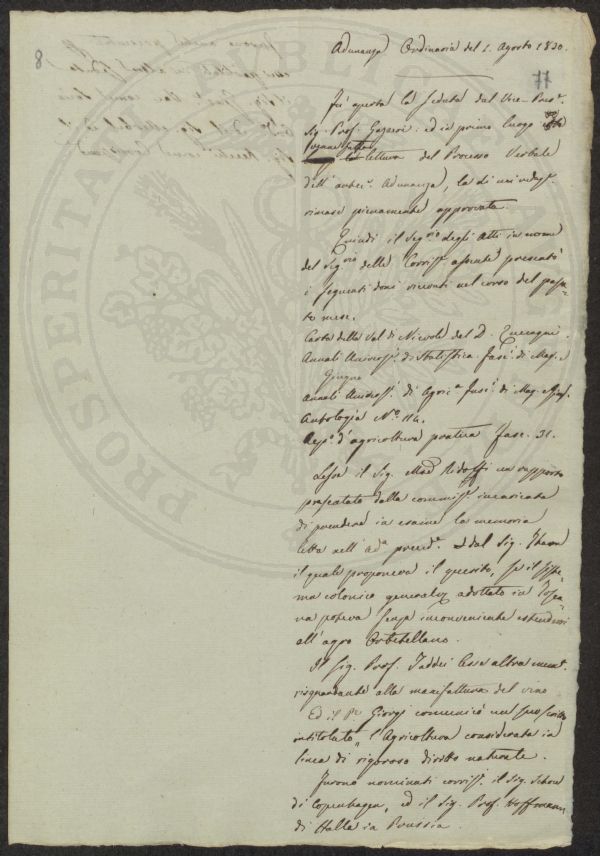 8
Adunanza Ordinaria del 1. Agosto 1830.
Fu aperta la seduta dal Vice-Pres.e
Sig. Prof. Gazzeri ed in primo luogo
venne fatta
la lettura del Processo Verbale
dell'antec.e Adunanza, la di cui redaz.e
rimase pienamente approvata.
Quindi il Seg.rio degli Atti in nome
del Seg.rio delle Corrisp. assente presentò
i seguenti doni ricevuti nel corso del passa-
to mese.
Carta della Val di Nievole del D.
Annali Univers.i di Statistica fasc. di Mag. e
Giugno
Annali Univers.i di Agric.a fasc. di Mag.
Antologia N.o 114.
Rep.o d'agricoltura pratica fasc. 31.
Lesse il Sig. Mse Ridolfi un rapporto
presentato dalla commiss. incaricata
di prendere in esame la memoria
letta nell'ad.a preced.e dal Sig.
il quale proponeva il quesito, se il siste-
ma colonico generalm. adottato in Tosca-
na poteva senza inconveniente estendersi
all'agro Orbetellano.
Il Sig. Prof. Taddei lesse altra mem.a
risguardante alla manifattura del vino
Ed il P.e Giorgi comunicò un suo scritto
intitolato "l'Agricoltura considerata in
linea di rigoroso diritto naturale.
Furono nominati corrisp. il Sig. Schow
di Copenhagen, ed il Sig. Prof. Hoffmann
di Halla in Prussia.